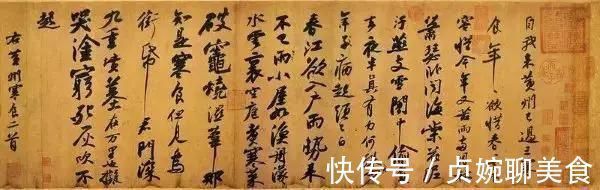 自我來黃州已過三寒
食年年欲惜春春去不
容惜今年又苦雨兩月秋
蕭瑟卧聞海棠花泥
汙燕支雪闇中偷負
去夜半真有力何殊
年子病起頭已白
春江欲入戶雨勢來
不已雨小屋如漁舟濛濛
水雲裏空庖煮寒菜
破竈燒濕葦那
知是寒食但見烏
銜帋君門深
九重墳墓在萬里也擬
哭塗窮死灰吹不
起
右黃州寒食二首
快传号/贞婉聊美食